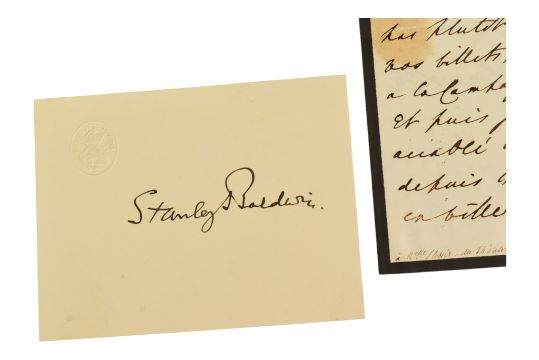 Stanley Baldwin.
pas plutôt
vos billets,
a la Campa
Et puis
accablé
depuis
en ville
à